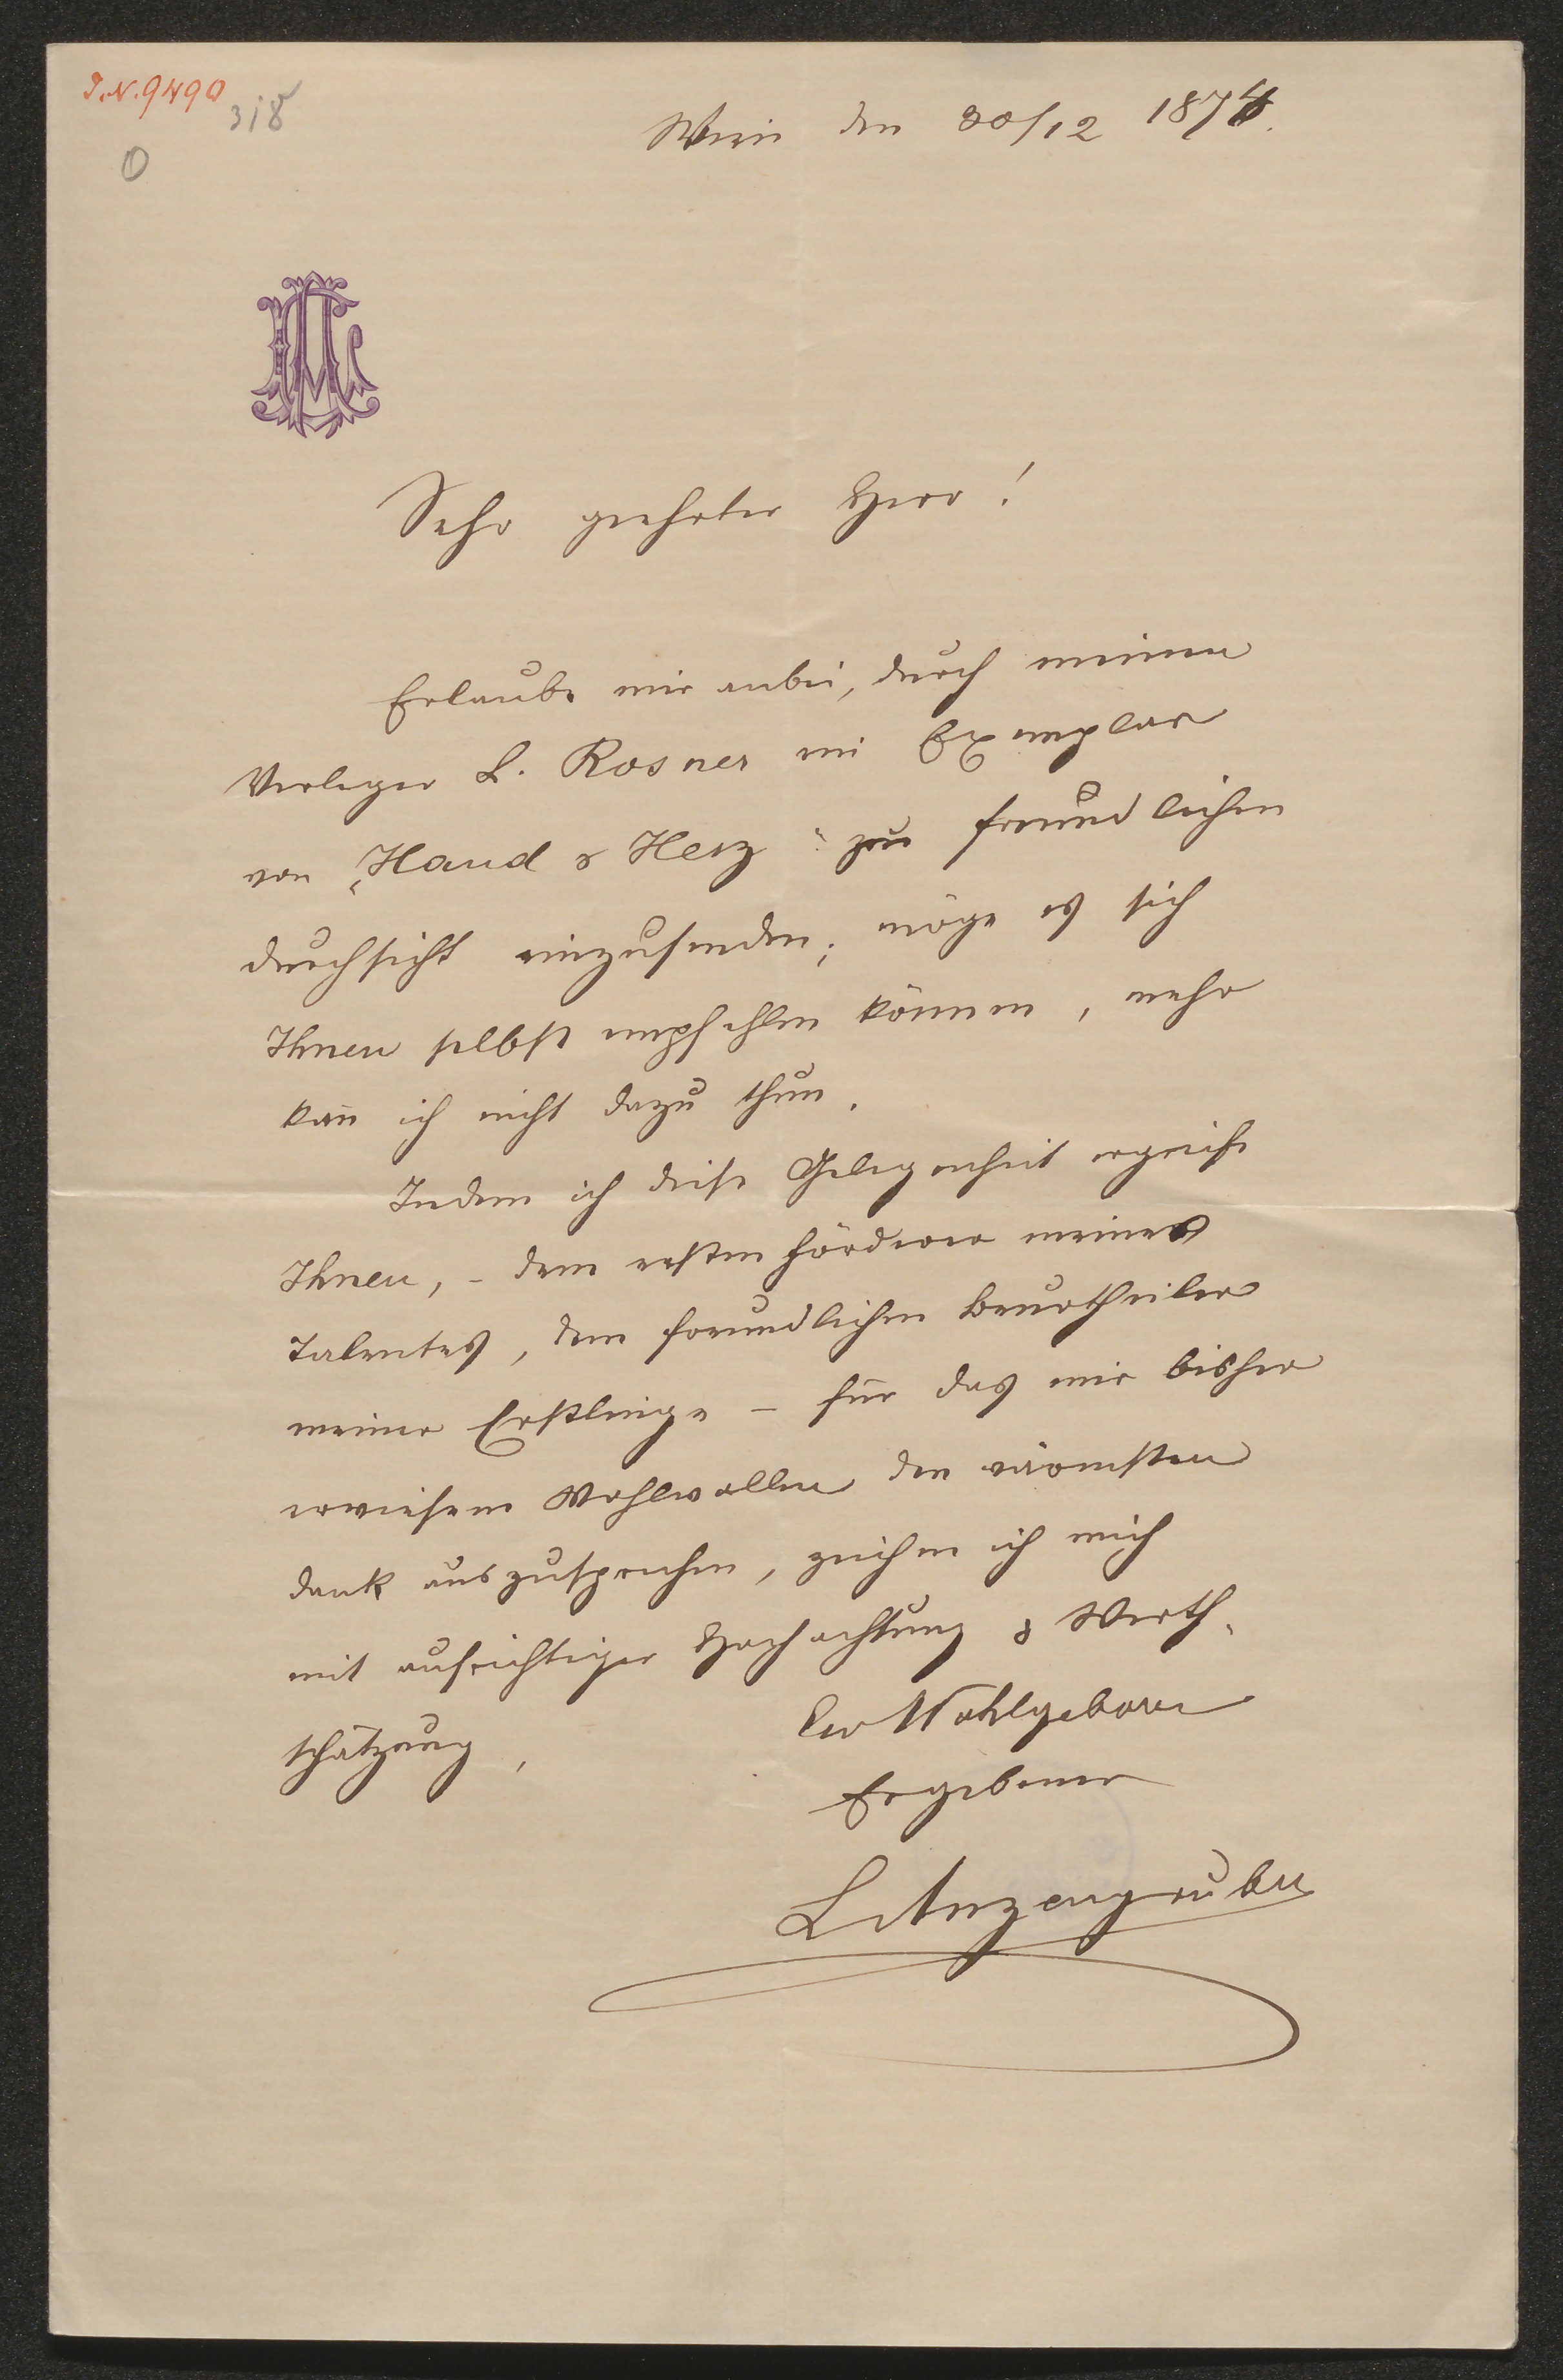 I.N. 9490
318
0
Wien den 30/12 1874.
Sehr geehrter Herr!
Erlaube mir anbei, durch meinen
Verleger L. Rosner ein Exemplar
von „Hand & Herz" zur freundlichen
Durchsicht einzusenden; möge es sich
Ihnen selbst empfehlen können, mehr
kan̄ ich nicht dazu thun.
Indem ich diese Gelegenheit ergreife
Ihnen, – dem ersten Förderer meines
Talentes, dem freundlichen Beurtheiler
meiner Erstlinge – für das mir bisher
erwiesene Wohlwollen den wärmsten
Dank auszusprechen, zeichne ich mich
mit aufrichtiger Hochachtung & Werth-
schätzung,
Ew Wohlgeboren
Ergebener
L Anzengruber